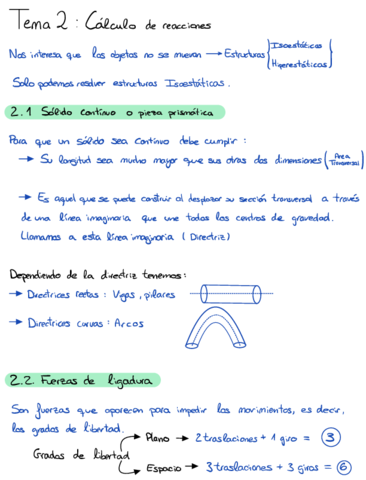 Tema 2 : Cálculo de reacciones
Nos interesa que los objetos no se muevan → Estructuras { Isoestáticas
Hiperestáticas }
Solo podemos resolver estructuras Isoestáticas.
2.1 Sólido Contínuo o pieza prismática
Para que un sólido sea Contínuo debe cumplir :
→ Su longitud sea mucho mayor que sus otras dos dimensiones ( Área Transversal )
→ Es aquel que se puede construir al desplazar su sección transversal a través
de una línea imaginaria que une todos los centros de gravedad.
Llamamos a esta línea imaginaria ( Directriz )
Dependiendo de la directriz tenemos :
→ Directrices rectas : Vigas , pilares
→ Directrices curvas : Arcos
2.2. Fuerzas de ligadura
Son fuerzas que aparecen para impedir los movimientos, es decir,
los grados de libertad.
Plano → 2 traslaciones + 1 giro = 3
Grados de libertad
Espacio → 3 traslaciones + 3 giros = 6